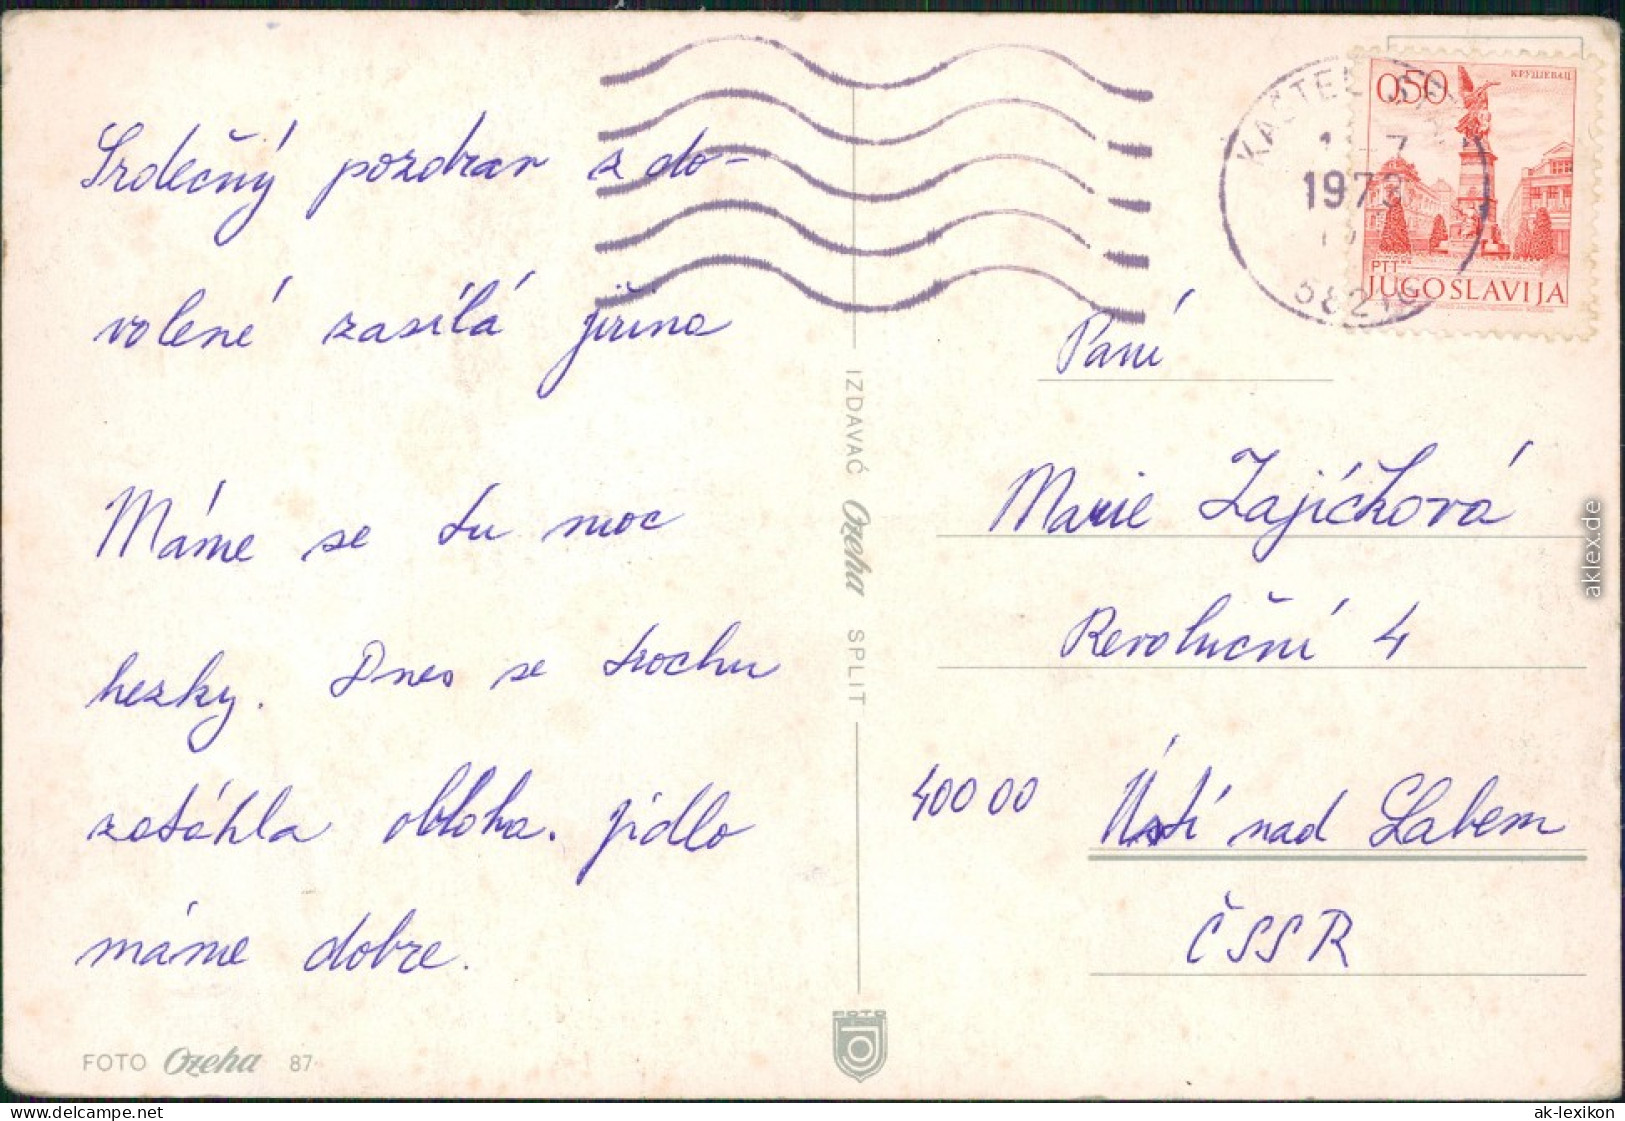 Srdečný pozdrav z do-
volené zasílá Jiřina
Máme se tu moc
hezky. Dnes se trochu
zatáhla obloha. Jídlo
máme dobré.
FOTO Ozeha 87
IZDAVAČ Ozeha SPLIT
FOTO
1973
0,50
КРУШЕВАЦ
PTT
JUGOSLAVIJA
Paní
Marie Zajíčková
Revoluční 4
400 00 Ústí nad Labem
ČSSR
aklex.de
www.delcampe.net
ak-lexikon